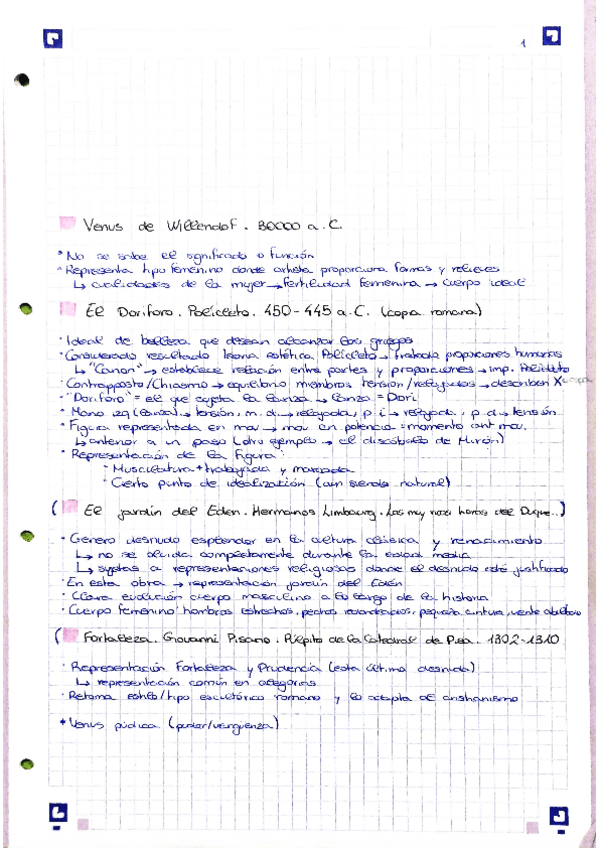 1
Venus de Willendof. 30000 a.C.
• No se sabe el significado o función
• Representa tipo femenino donde artista proporciona formas y relieves
↳ cualidades de la mujer → fertilidad femenina → cuerpo ideal
El Doriforo. Policleto. 450-445 a.C. (copia romana)
• Ideal de belleza que desean alcanzar los griegos
• Considerado resultado teoria estética Policleto → tratado proporciones humanas
↳ "Canon" → establece relación entre partes y proporciones → imp. Policleto
• Contrapposto/Chiasmo → equilibrio miembros tension/relajados → describen X
• "Doriforo" = el que sujeta la lanza → lanza = Dori
• Mano izq (lanza) → tensión, m. d. → relajada, p. i → relajada, p. d → tensión
• Figura representada en mov → mov en potencia = momento ant mov.
↳ anterior a un paso (otro ejemplo → el discóbolo de Mirón)
• Representación de la figura:
• Musculatura + trabajada y marcada
• Cierto punto de idealización (aun siendo natural)
( El jardín del Eden. Hermanos Limbourg. Las muy ricas horas del Duque..)
• Genero desnudo esplendor en la cultura clásica y renacimiento
↳ no se olvida completamente durante la edad media
↳ sujetas a representaciones religiosas donde el desnudo esté justificado
• En esta obra → representación jardín del Edén
• Clara evolución cuerpo masculino a lo largo de la historia
• Cuerpo femenino: hombros estrechos, pechos redondeados, pequeña cintura, vente
( Fortaleza. Giovanni Pisano. Púlpito de la Catedral de Pisa. 1302-1310
• Representación Fortaleza y Prudencia (esta última desnuda)
↳ representación común en alegorías
• Retoma estilo/tipo escultórico romano y lo adapta al cristianismo
* Venus púdica (pudor/vergüenza)